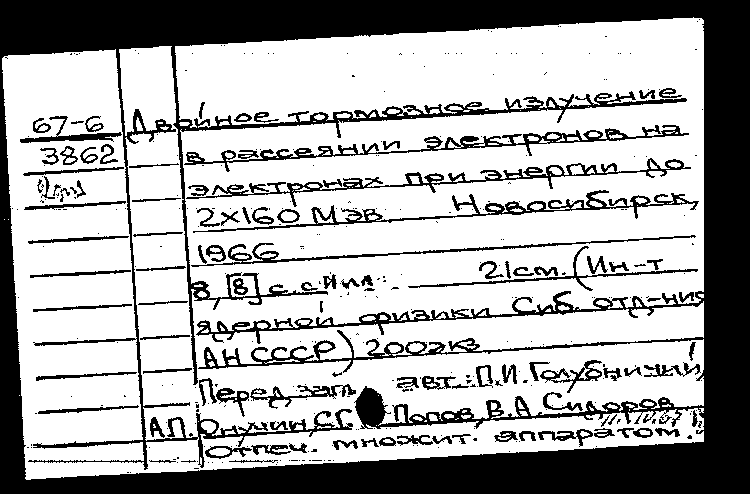 67-6 Двойное тормозное излучение
3862 в рассеянии электронов на
электронах при энергии до
2×160 Мэв. Новосибирск,
1966
8, [8] с. с илл. 21см. (Ин-т
ядерной физики Сиб. отд-ния
АН СССР) 200экз.
Перед загл. авт.: П.И.Голубничий,
А.П. Онучин, С.Г. Попов, В.А. Сидоров
Отпеч. множит. аппаратом.